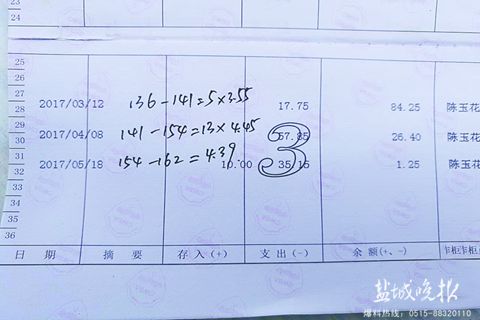 23
24
25
26
27
28 2017/03/12 136-141=5×3.55 17.75 84.25 陈玉花
29
30 2017/04/08 141-154=13×4.45 57.85 26.40 陈玉花
31
32 2017/05/18 154-162=4.39 10.00 35.15 1.25 陈玉花
33
34
35
36
3
日 期 摘 要 存 入(+) 支 出(-) 余 额(+、-)
盐城晚报
爆料热线：0515-88320110